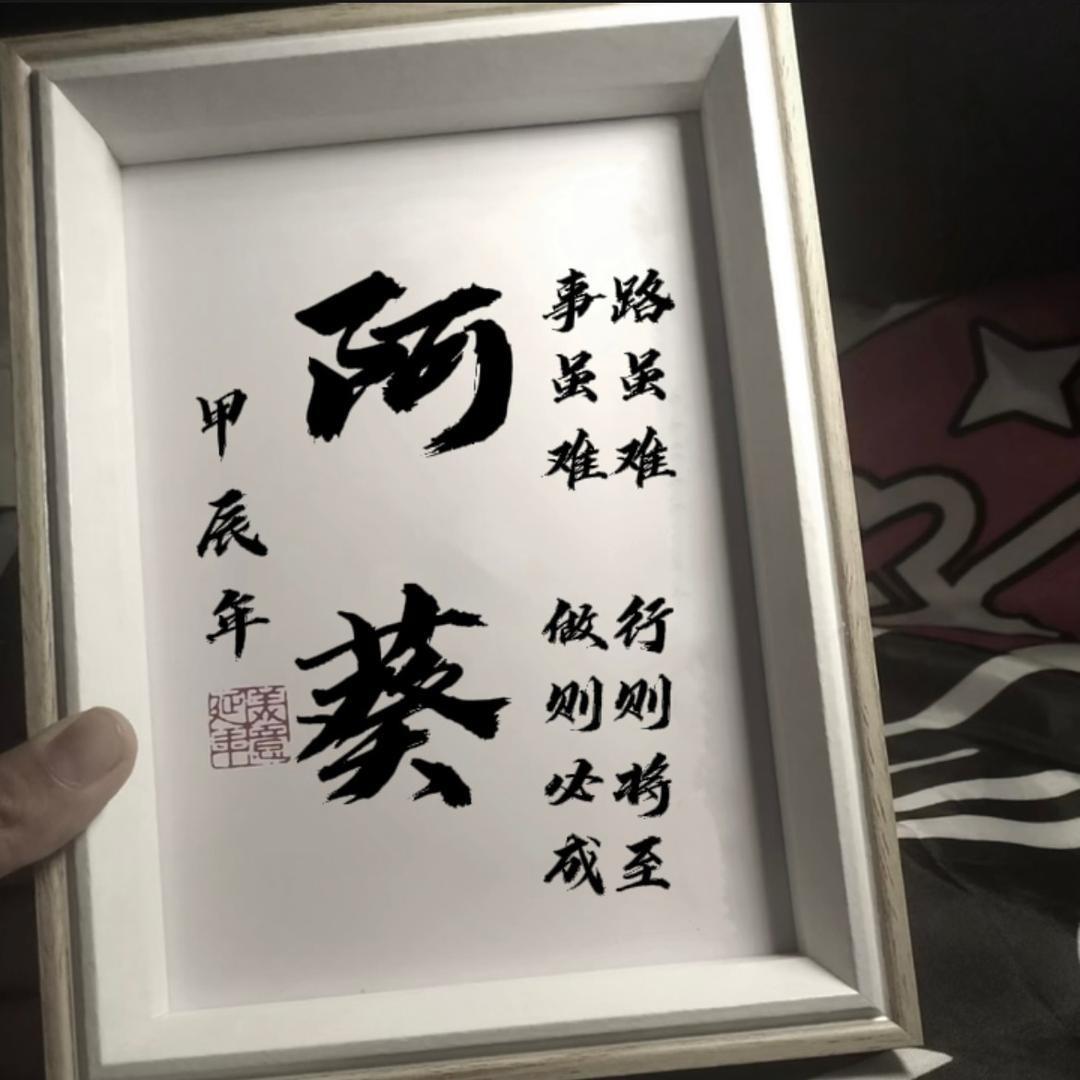 路虽难 行则将至
事虽难 做则必成
阿葵
甲辰年
美意延年